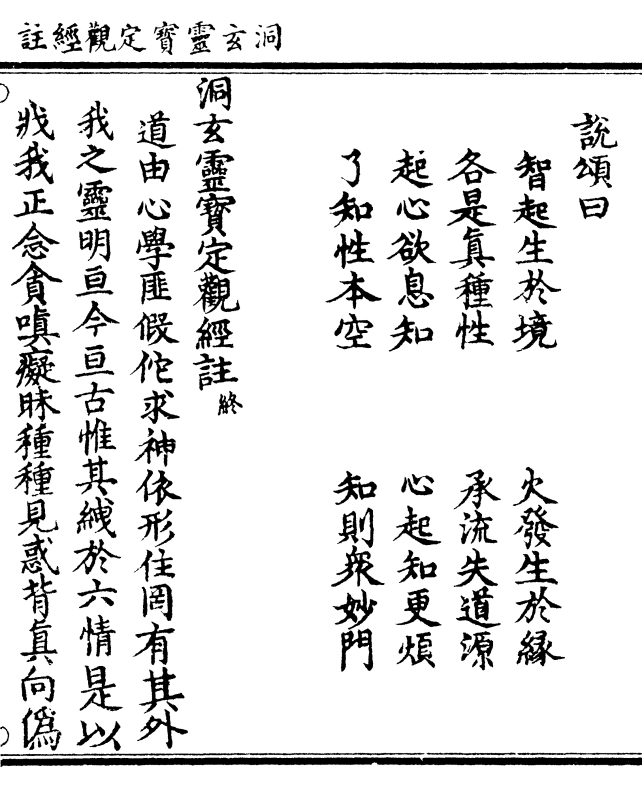 洞玄靈寶定觀經註
說頌曰
智起生於境　火發生於緣
各是眞種性　承流失道源
起心欲息知　心起知更煩
了知性本空　知則衆妙門
洞玄靈寶定觀經註終
道由心學匪假佗求神依形住罔有其外
我之靈明亘今亘古惟其縛於六情是以
戕我正念貪嗔癡昧種種見惑背眞向僞